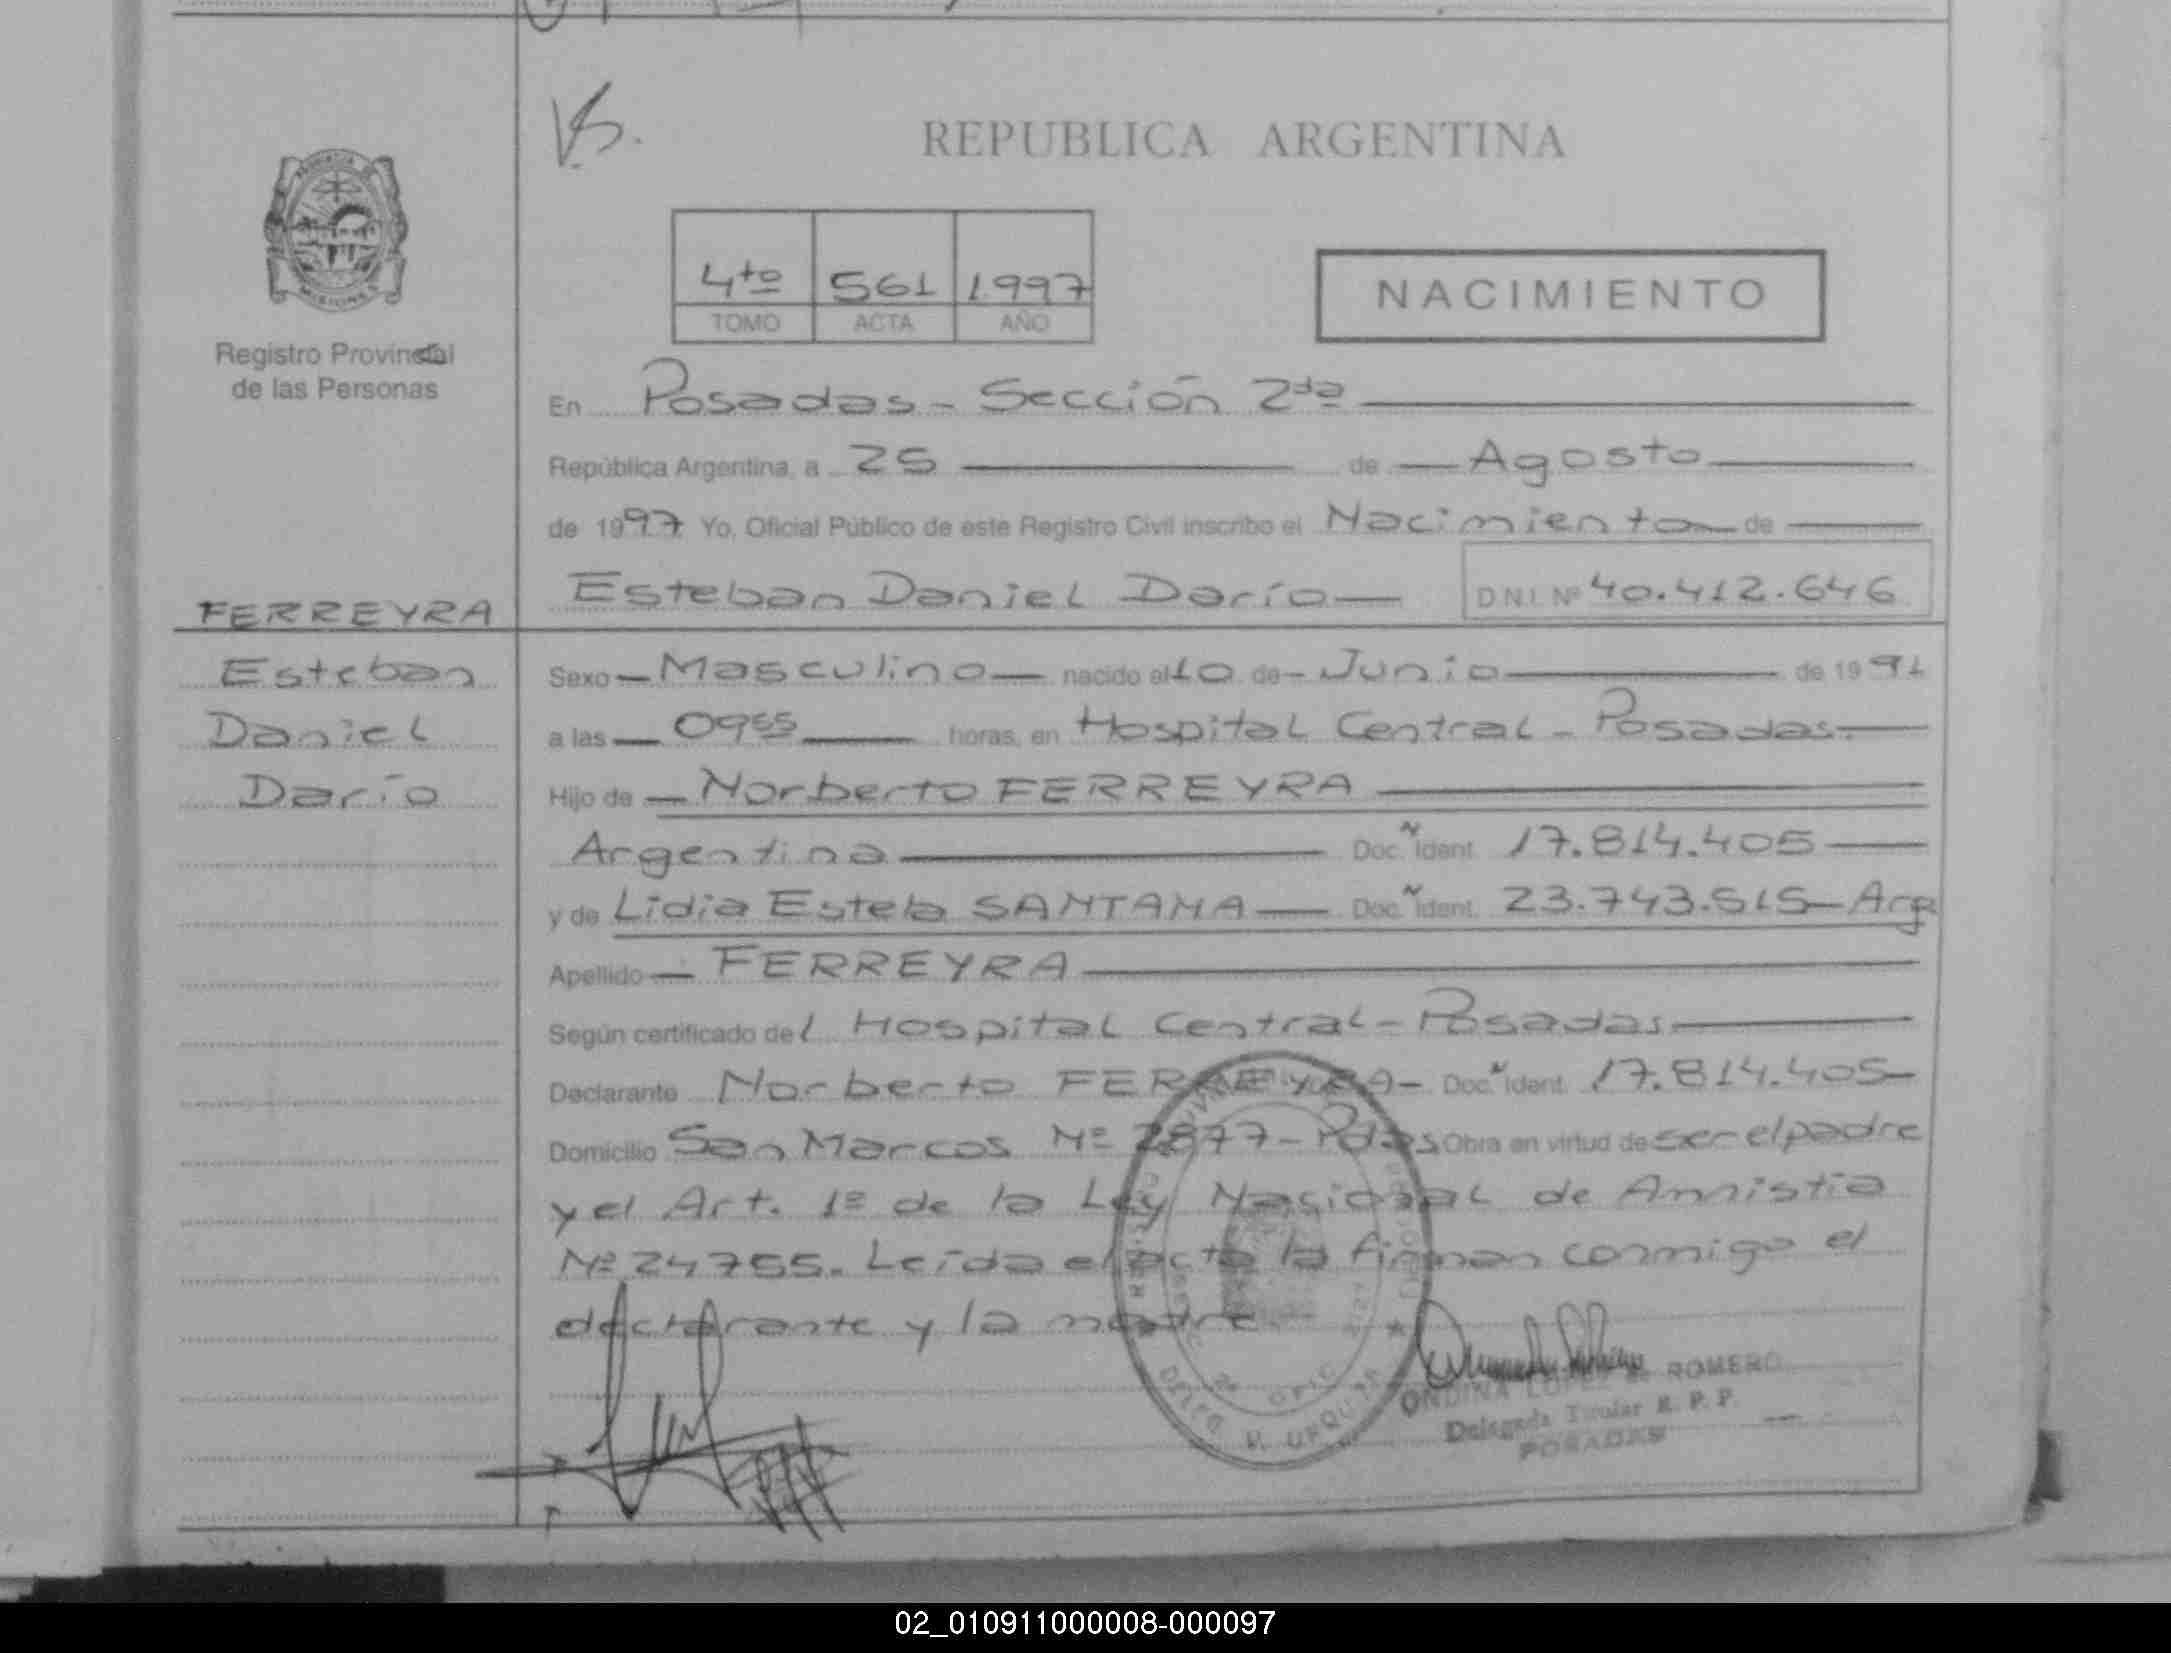 V.S.
REPUBLICA ARGENTINA
PROVINCIA
MISIONES
Registro Provincial
de las Personas
4to 561 1997
TOMO ACTA AÑO
NACIMIENTO
En Posadas - Sección 2da
República Argentina, a 25 de Agosto
de 1997 Yo, Oficial Público de este Registro Civil inscribo el Nacimiento de
Esteban Daniel Darío D.N.I. Nº 40.412.646
FERREYRA
Esteban
Daniel
Darío
Sexo Masculino nacido el 10 de Junio de 1991
a las 0955 horas, en Hospital Central - Posadas.
Hijo de Norberto FERREYRA
Argentina Doc. Ident. 17.814.405
y de Lidia Estela SANTANA Doc. Ident. 23.743.515 - Arg
Apellido FERREYRA
Según certificado del Hospital Central - Posadas
Declarante Norberto FERREYRA - Doc. Ident. 17.814.405
Domicilio San Marcos Nº 2877 - Pdas Obra en virtud de ser el padre
y el Art. 1º de la Ley Nacional de Amnistia
Nº 24755. Leída el acta la firman conmigo el
declarante y la madre
ONDINA LOPEZ de ROMERO
Delegada Titular R. P. P.
POSADAS
02_010911000008-000097